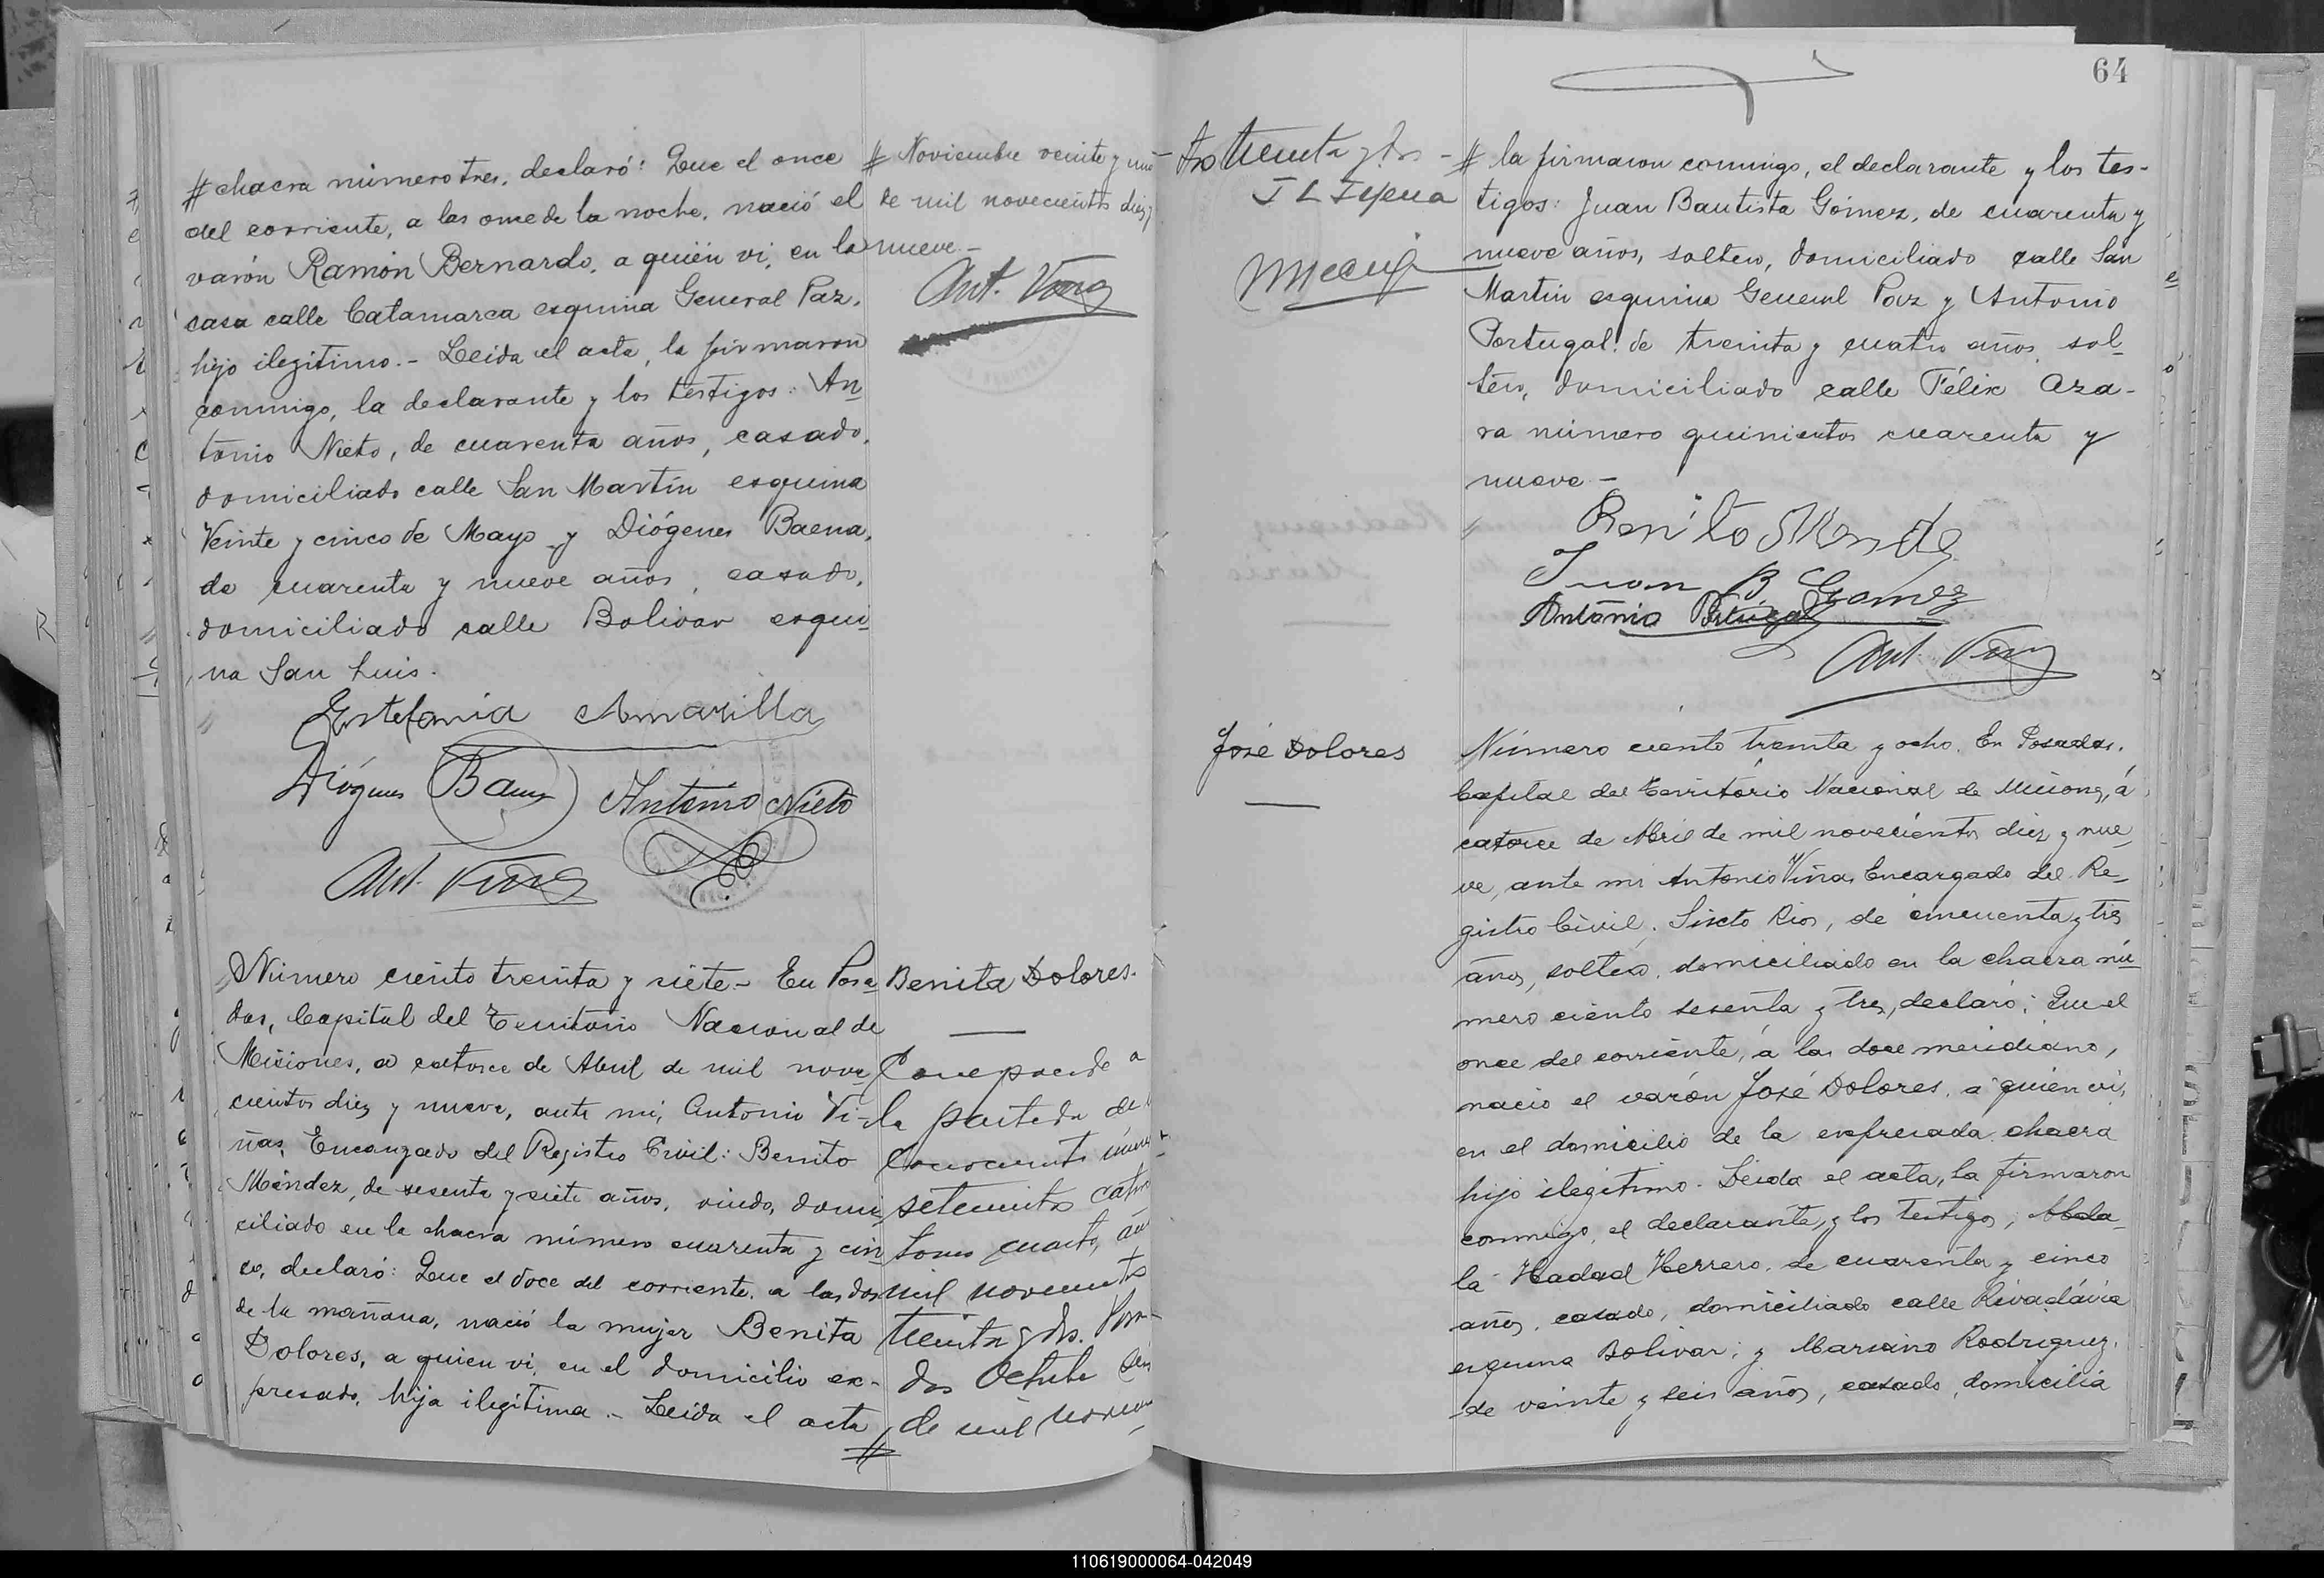 # chacra número tres, declaró: Que el once
del corriente, a las once de la noche, nació el
varón Ramón Bernardo, a quién vi, en la
casa calle Catamarca esquina General Paz,
hijo ilegítimo.- Leida el acta, la firmaron
conmigo, la declarante y los testigos: An
tonio Nieto, de cuarenta años, casado,
domiciliado calle San Martín esquina
Veinte y cinco de Mayo y Diógenes Baena,
de cuarenta y nueve años, casado,
domiciliado calle Bolivar esqui
na San Luis.
Estefania Amarilla
Diógenes Baena
Antonio Nieto
Ant. Viñas
# Noviembre veinte y uno
de mil novecientos diez y
nueve.-
Ant. Viñas
Número ciento treinta y siete.- En Posa
das, Capital del Territorio Nacional de
Misiones, a catorce de Abril de mil nove
cientos diez y nueve, ante mi, Antonio Vi-
ñas, Encargado del Registro Civil: Benito
Méndez, de sesenta y siete años, viudo, domi
ciliado en la chacra número cuarenta y cin
co, declaró: Que el doce del corriente, a las dos
de la mañana, nació la mujer Benita
Dolores, a quien vi, en el domicilio ex-
presado, hija ilegítima.- Leida el acta
#
Benita Dolores.
Corresponde a
la partida de
setecientos
tomo cuarto,
mil novecientos
treinta y dos. Posa-
das Octubre seis
de mil novecien
64
tos treinta y dos -
# la firmaron conmigo, el declarante y los tes-
tigos: Juan Bautista Gómez, de cuarenta y
nueve años, soltero, domiciliado calle San
Martin esquina General Paz y Antonio
Portugal, de treinta y cuatro años, sol
tero, domiciliado calle Félix Aza-
ra número quinientos cuarenta y
nueve -
Benito Mendez
Juan B Gomez
Antonio Portugal
Ant. Viñas
José Dolores
Número ciento treinta y ocho. En Posadas,
Capital del Territorio Nacional de Misiones, á
catorce de Abril de mil novecientos diez y nue
ve, ante mi Antonio Viñas, Encargado del Re-
gistro Civil, Sixto Rios, de cincuenta y tres
años, soltero, domiciliado en la chacra nú
mero ciento sesenta y tres, declaró: Que el
once del corriente, á las doce meridiano,
nació el varón José Dolores, a quien vi,
en el domicilio de la expresada chacra
hijo ilegitimo. Leida el acta, la firmaron
conmigo, el declarante, y los testigos,
Hadad Herrero, de cuarenta y cinco
años, casado, domiciliado calle Rivadávia
esquina Bolivar; y Marcino Rodriguez,
de veinte y seis años, casado, domicilia
110619000064-042049